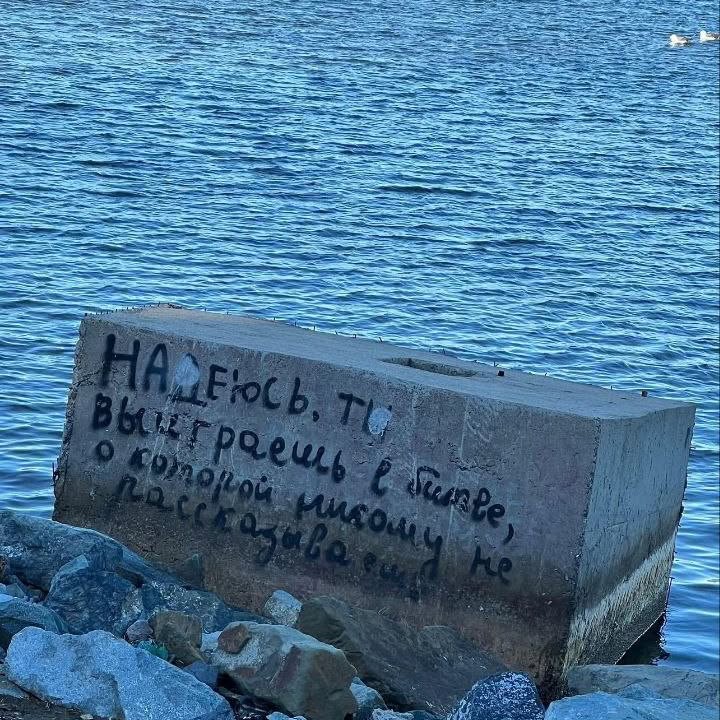 НАДЕЮСЬ, ТЫ
ВЫИГРАЕШЬ в битве,
о которой никому не
рассказываешь